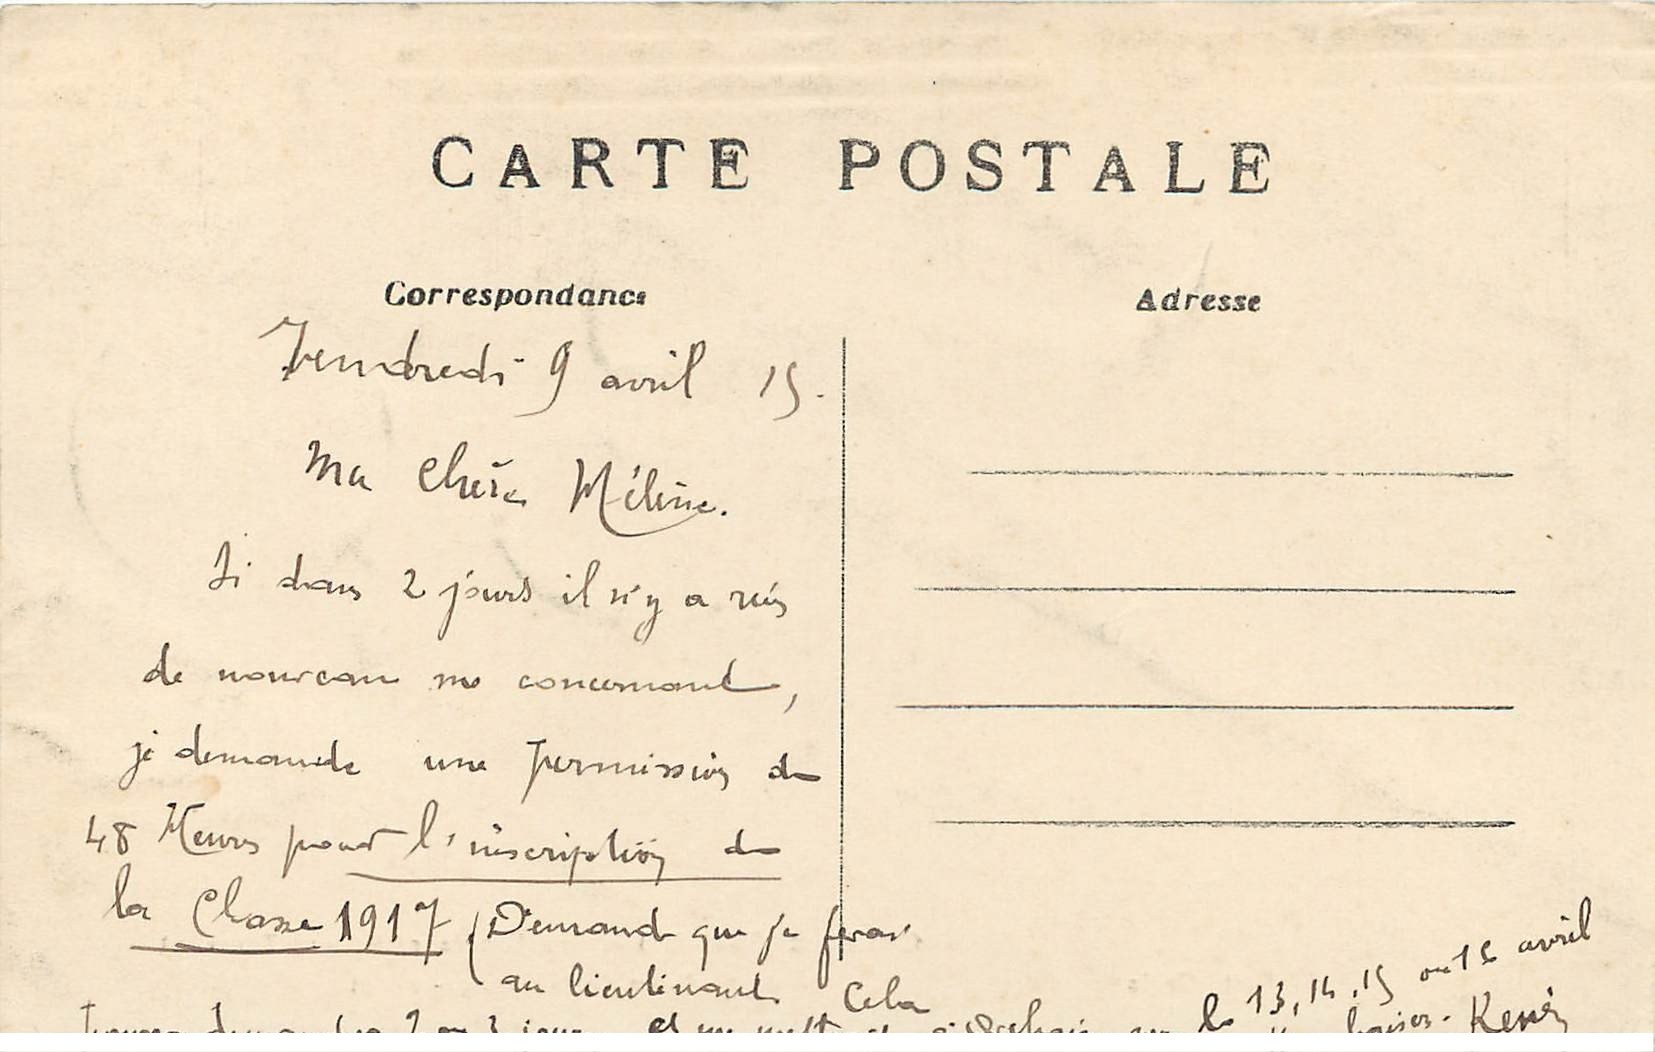 CARTE POSTALE
Correspondance
Adresse
Vendredi 9 avril 15.
Ma Chère Hélène.
Si dans 2 jours il n'y a rien
de nouveau me concernant,
je demande une permission de
48 Heures pour l'inscription de
la Classe 1917 (Demande que je ferai
au lieutenant. Cela
2 ou 3 jours et
le 13, 14, 15 ou 16 avril
baisers. René